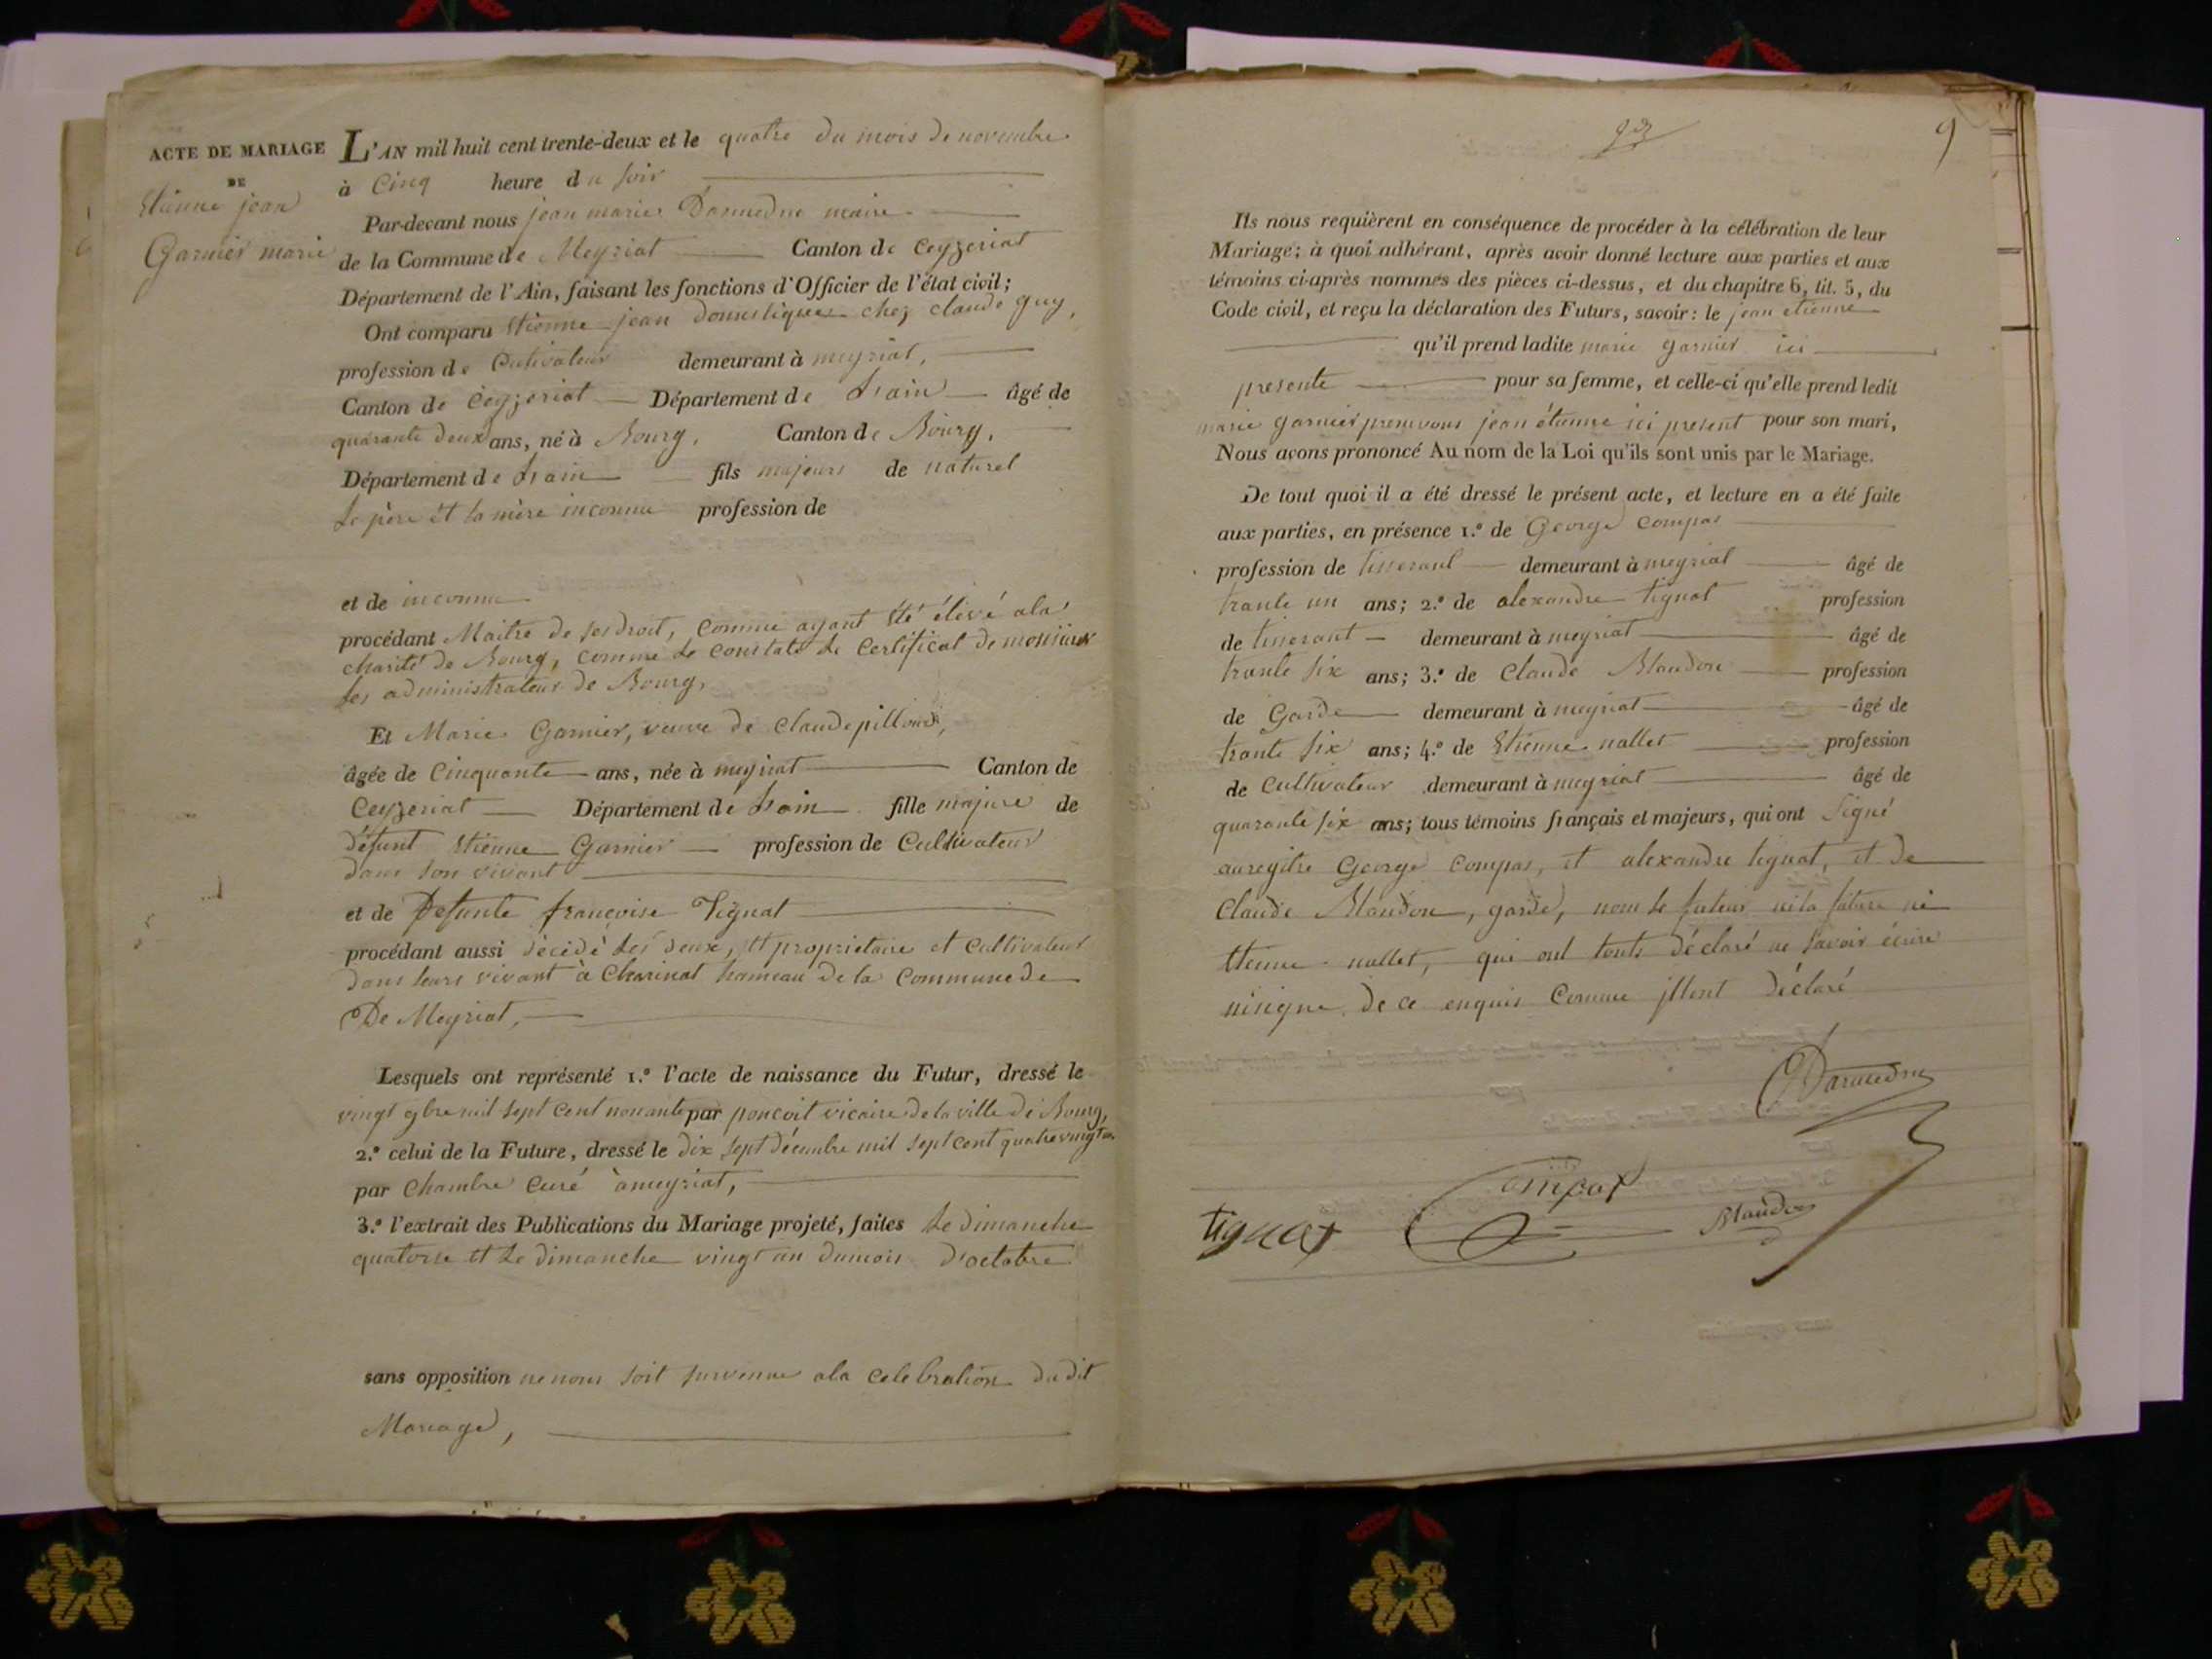 ACTE DE MARIAGE
DE
Etienne jean
Garnier marie
L'AN mil huit cent trente-deux et le quatre du mois de novembre
à Cinq heure du soir
Par-devant nous jean marie Darmedru maire
de la Commune de Meyriat Canton de Ceyzeriat
Département de l'Ain, faisant les fonctions d'Officier de l'état civil;
Ont comparu Etienne jean domestique chez claude guy,
profession de Cultivateur demeurant à meyriat,
Canton de Ceyzeriat Département de L'ain âgé de
quarante deux ans, né à Bourg, Canton de Bourg,
Département de L'ain fils majeurs de naturel
Le père et la mère inconnu profession de
et de inconnu
procédant Maitre de ses droit, comme ayant été élevé ala
charité de Bourg, comme le constate le certificat de monsieur
les administrateur de Bourg,
Et Marie Garnier, veuve de Claude pillond,
âgée de Cinquante ans, née à meyriat Canton de
Ceyzeriat Département de L'ain fille majure de
défunt Etienne Garnier profession de Cultivateur
dans son vivant
et de Defunte françoise Tignat
procédant aussi décédé les deux, et propriétaire et cultivateur
dans leurs vivant à Charinat hameau de la commune de
De Meyriat,
Lesquels ont représenté 1.º l'acte de naissance du Futur, dressé le
vingt 9bre mil sept cent nonante par poncoit vicaire de la ville de Bourg,
2.º celui de la Future, dressé le dix sept décembre mil sept cent quatre vingt un
par Chambre Curé à meyriat,
3.º l'extrait des Publications du Mariage projeté, faites Le dimanche
quatorse et Le dimanche vingt un dumois d'octobre
sans opposition ne nous soit survenue ala celebration dudit
Mariage,
9
Ils nous requièrent en conséquence de procéder à la célébration de leur
Mariage; à quoi adhérant, après avoir donné lecture aux parties et aux
témoins ci-après nommés des pièces ci-dessus, et du chapitre 6, tit. 5, du
Code civil, et reçu la déclaration des Futurs, savoir: le jean etienne
qu'il prend ladite marie garnier ici
presente pour sa femme, et celle-ci qu'elle prend ledit
marie garnier prenevous jean étienne ici present pour son mari,
Nous avons prononcé Au nom de la Loi qu'ils sont unis par le Mariage.
De tout quoi il a été dressé le présent acte, et lecture en a été faite
aux parties, en présence 1.º de George compas
profession de tisserant demeurant à meyriat âgé de
trante un ans; 2.º de alexandre tignat profession
de tisserant demeurant à meyriat âgé de
trante six ans; 3.º de Claude Blandon profession
de Garde demeurant à meyriat âgé de
trante six ans; 4.º de Etienne nallet profession
de Cultivateur demeurant à meyriat âgé de
quarante six ans; tous témoins français et majeurs, qui ont Signé
auregitre George compas, et alexandre tignat, et de
Claude Blandon, garde, non le futeur nila future ni
Etienne nallet, qui ont touts déclaré ne savoir écrire
nisigne de ce enquis Comme jllont déclaré
Darmedru
Compas
tignat
Blandon